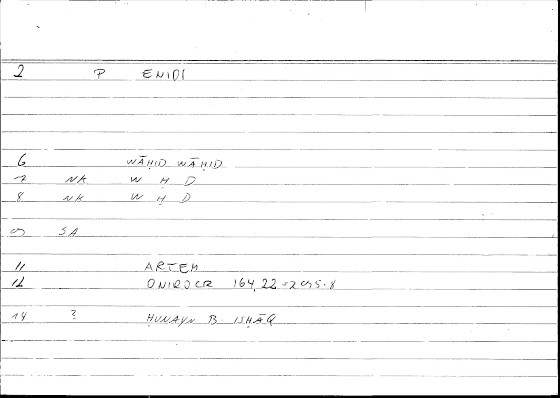 2 P ENIDI
6 WĀḤID WĀḤID
7 NK W Ḥ D
8 NK W Ḥ D
9 SA
11 ARTEM
12 ONIROCR 164,22 = 295.8
14 ? ḤUNAYN B. ISḤĀQ